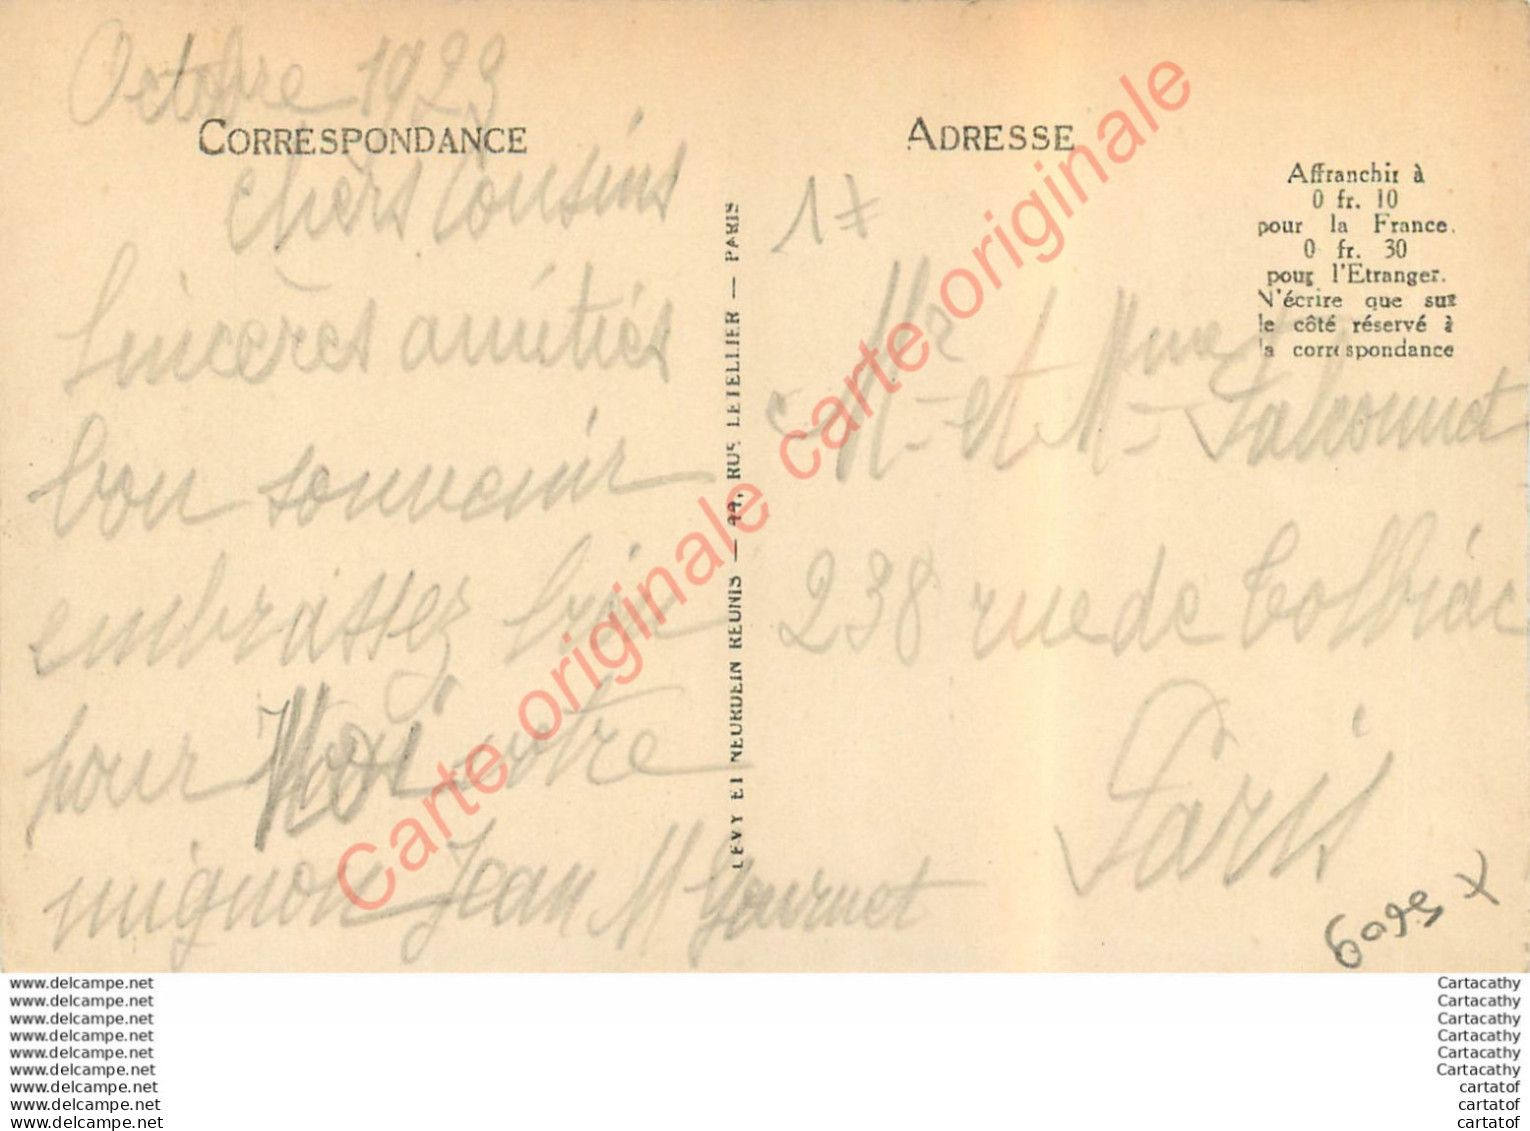 Octobre 1923
CORRESPONDANCE
chèrs Cousins
Sincères amitiés
bon souvenir
embrassez bien
pour Moi votre
mignon Jean M Gournet
LEVY ET NEURDEIN REUNIS — 44, RUE LETELLIER — PARIS
ADRESSE
Affranchir à
0 fr. 10
pour la France.
0 fr. 30
pour l'Etranger.
N'écrire que sur
le côté réservé à
la correspondance
17
Mr et Mme Falconnet
238 rue de Tolbiac
Paris
Carte originale carte originale carte originale
www.delcampe.net
www.delcampe.net
www.delcampe.net
www.delcampe.net
www.delcampe.net
www.delcampe.net
www.delcampe.net
www.delcampe.net
www.delcampe.net
Cartacathy
Cartacathy
Cartacathy
Cartacathy
Cartacathy
Cartacathy
cartatof
cartatof
cartatof